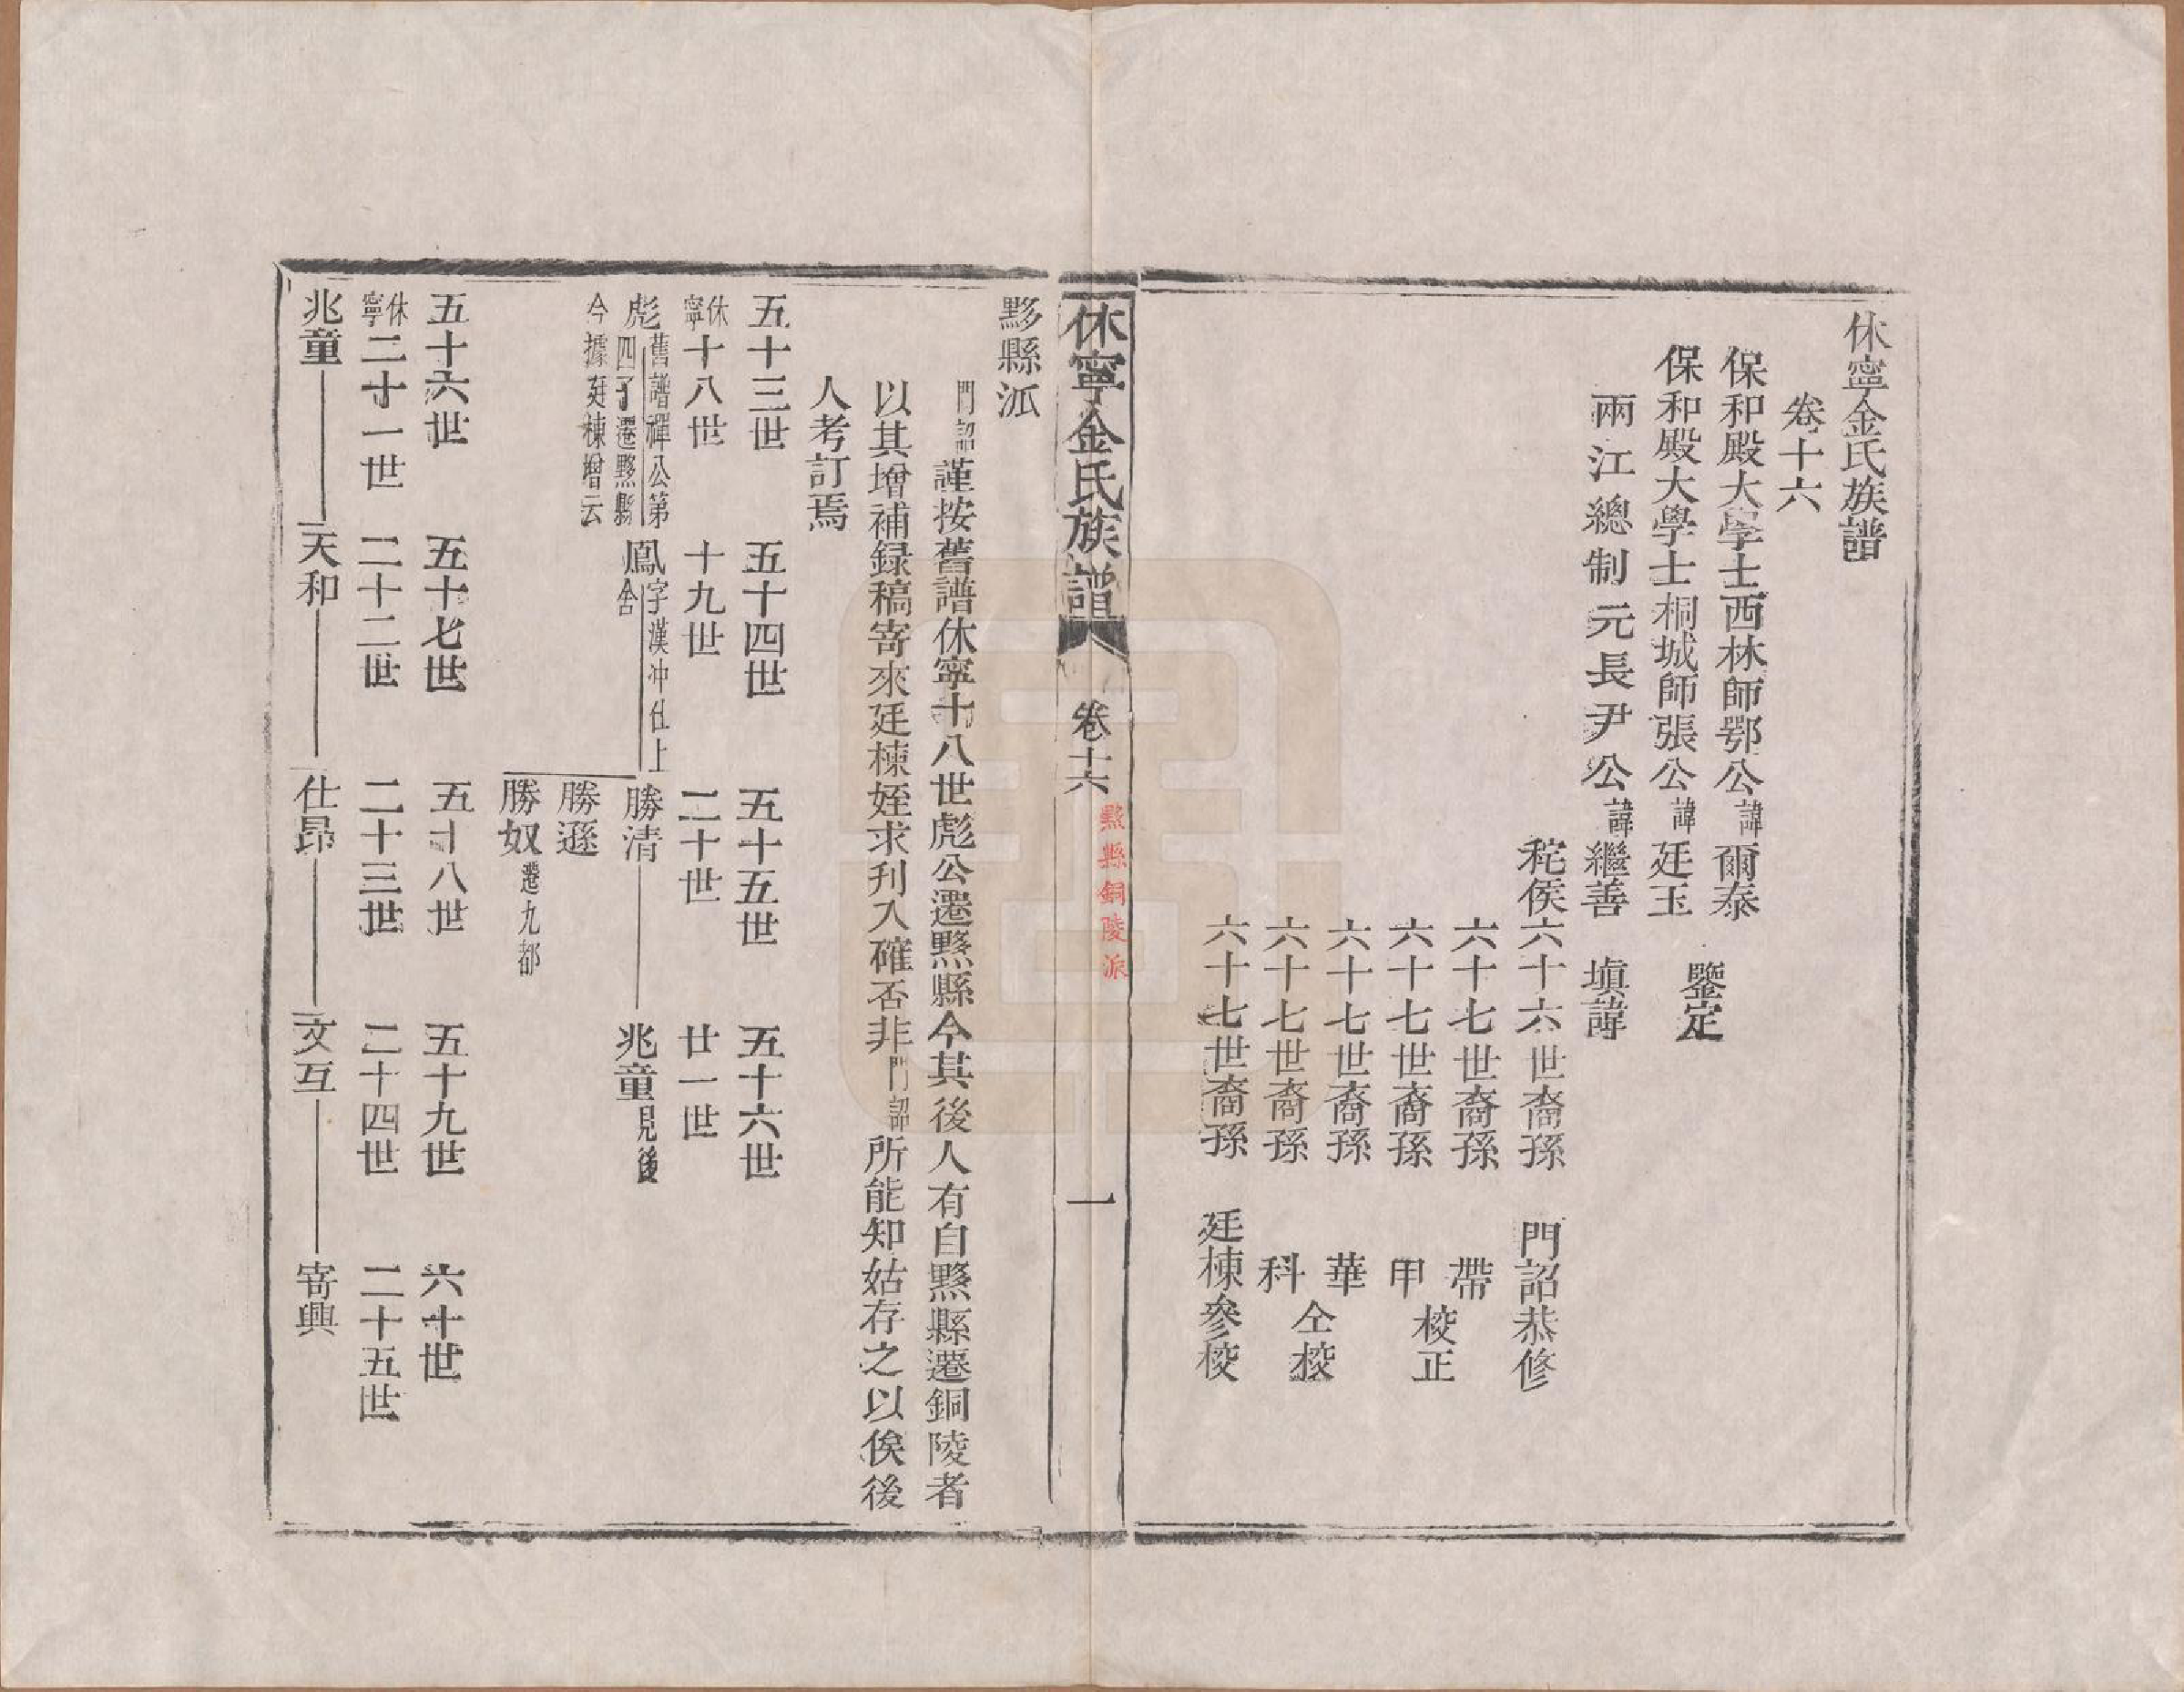 休寧金氏族譜
卷十六
保和殿大學士西林師鄂公諱爾泰
保和殿大學士桐城師張公諱廷玉
鑒定
兩江總制元長尹公諱繼善 填諱
秺侯六十六世裔孫 門詔恭修
六十七世裔孫 帶
六十七世裔孫 甲
校正
六十七世裔孫 華
六十七世裔孫 科
仝挍
六十七世裔孫 廷棟參校
休寧金氏族譜 卷十六 黟縣銅陵派 一
黟縣派
門詔謹按舊譜休寧十八世彪公遷黟縣今其後人有自黟縣遷銅陵者
以其增補録稿寄來廷棟姪求刋入確否非門詔所能知姑存之以俟後
人考訂焉
五十三世 五十四世 五十五世 五十六世
休寧十八世 十九世 二十世 廿一世
彪舊譜禪公第四子遷黟縣 鳳字漢冲仕上舍 勝清 兆童見後
今據廷棟增云
勝遜
勝奴遷九都
五十六世 五十七世 五十八世 五十九世 六十世
休寧二十一世 二十二世 二十三世 二十四世 二十五世
兆童 天和 仕昂 文互 寄興